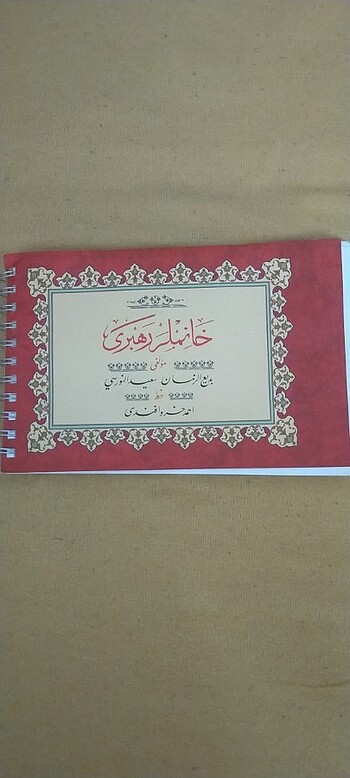 خانملر رهبرى
مؤلفى
بديع الزمان سعيد النورسي
خط
احمد خسرو افندى